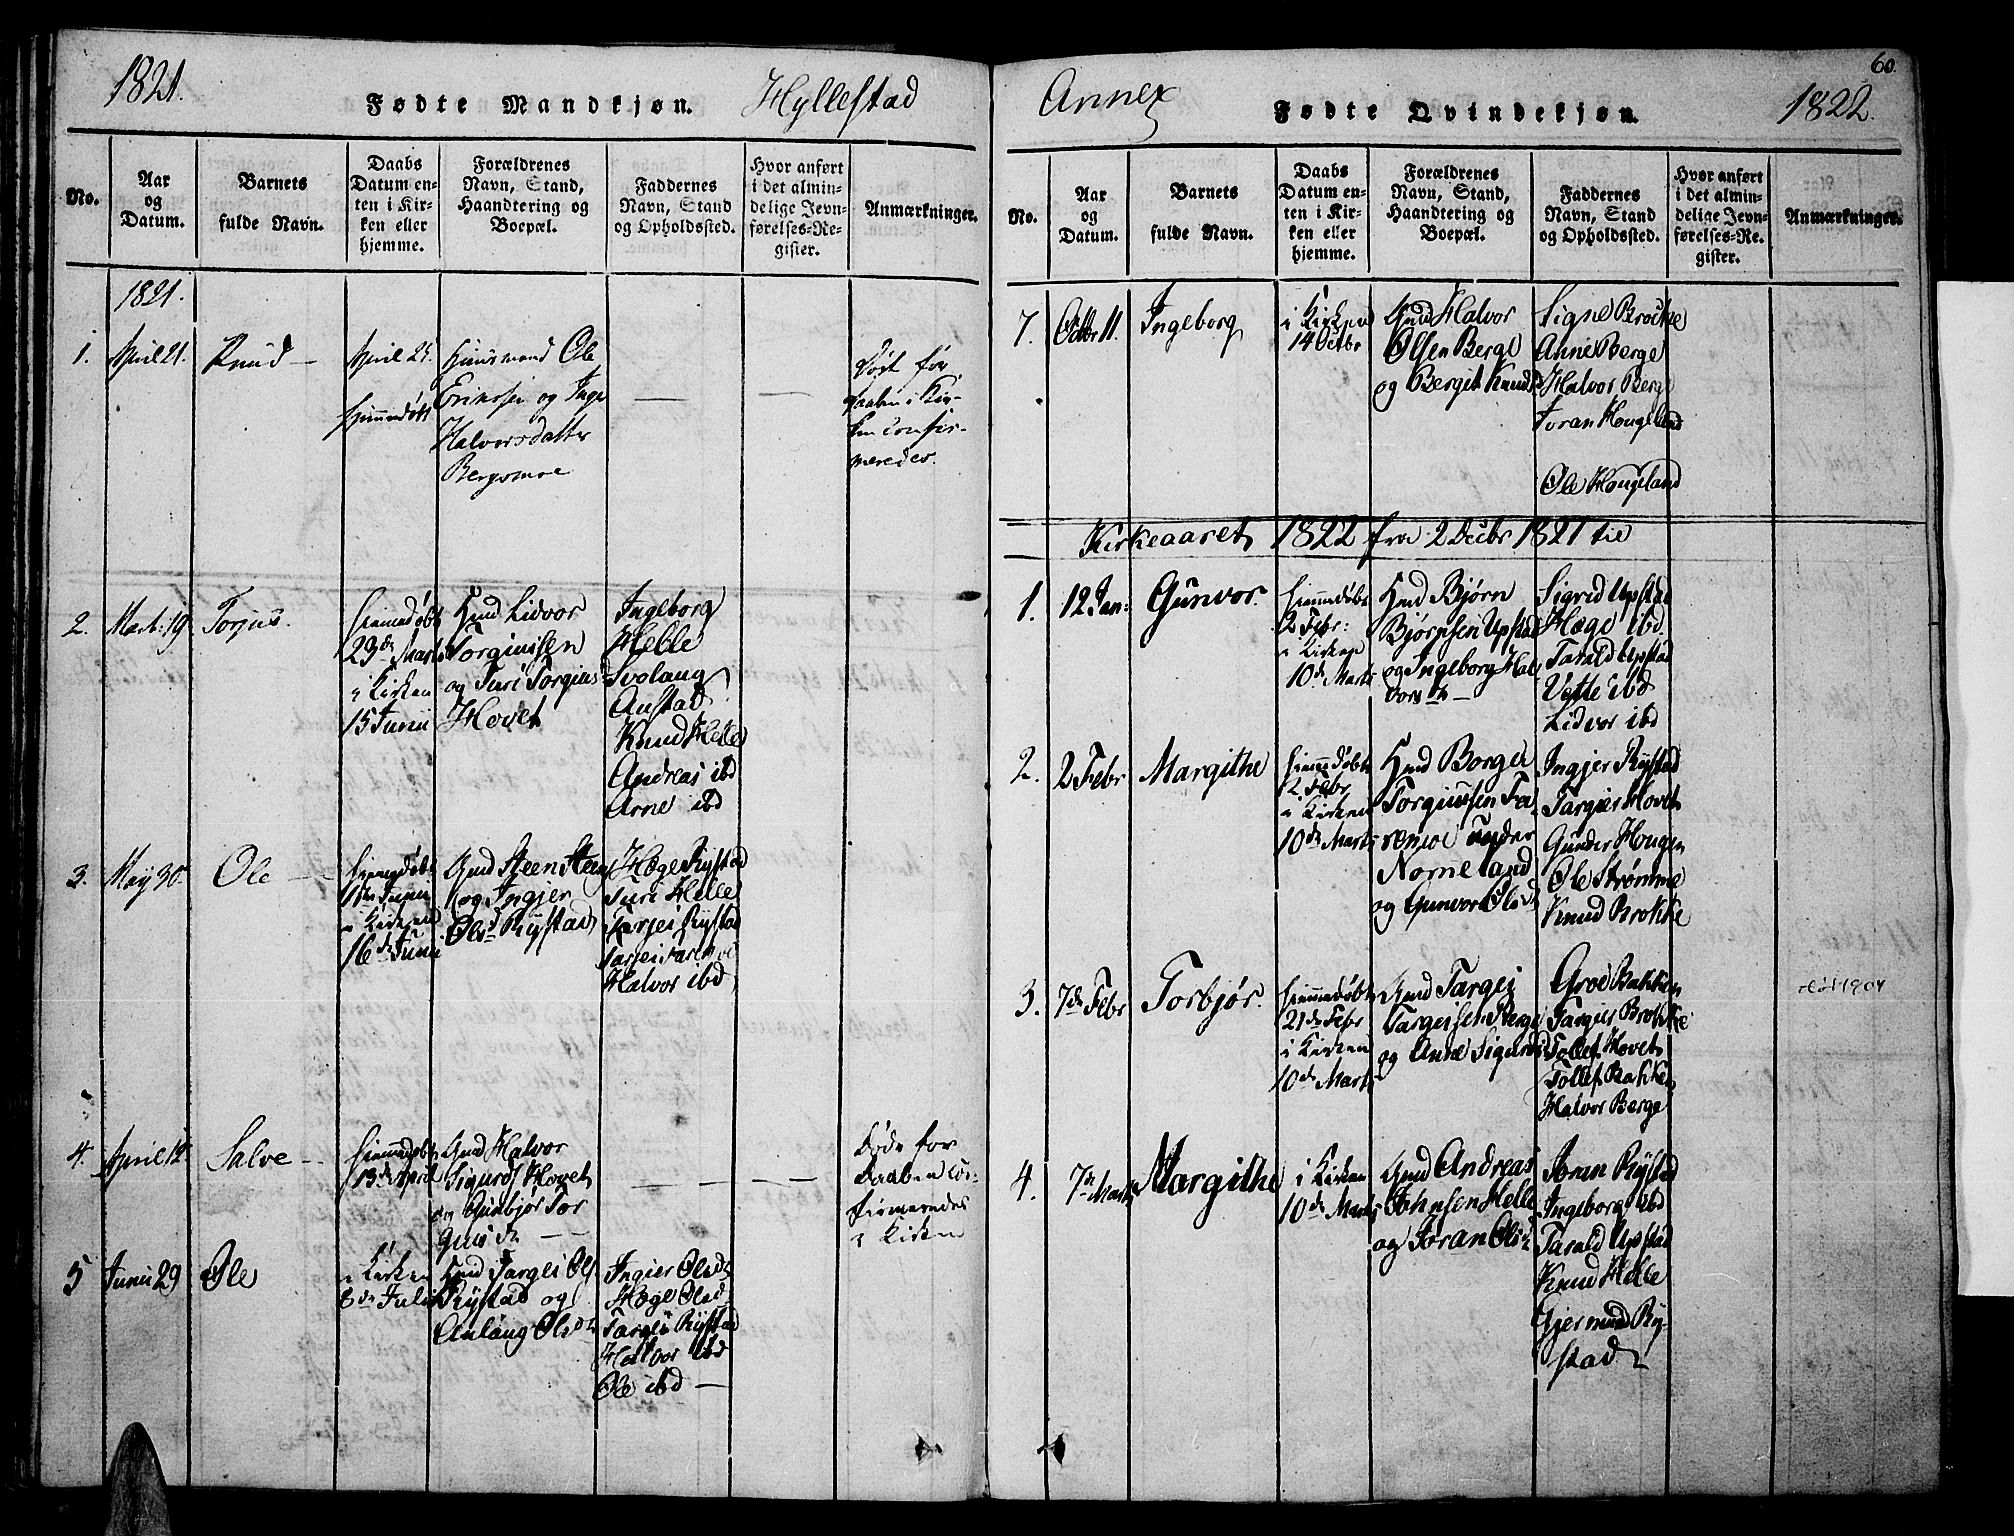 1821.
Fødte Mandkjøn.
Hyllestad
No.
Aar
og
Datum.
Barnets
fulde Navn.
Daabs
Datum en-
ten i Kir-
ken eller
hjemme.
Forældrenes
Navn, Stand,
Haandtering og
Boepæl.
Faddernes
Navn, Stand
og Opholdssted.
Hvor anført
i det almin-
delige Jevn-
førelses-Re-
gister.
Anmærkninger.
1821.
1.
April 21.
Knud
April 25.
Huusmand Ole
Erikssen og Inge
Halvorsdatter
Bergsmoe
før
Daaben i Kir-
ken confir-
meredes.
2.
Mart. 19.
Torjus.
Hiemmedøbt
23de Marts
i Kirken
15 Junii
Gmd Lidvor
Torgiussen
og Turi Torgiusd
Hovet
Ingeborg
Helle
Svolaug
Austad
Knud Helle
Andreas ibd
Arne ibd
3.
May 30.
Ole
Hiemmedøbt
i Kirken
16de Junii
Gmd Steen Steens
og Ingjer
Olsd Rystad
Hæge Rystad
Turi Helle
Torjei Rystad
Halvor ibd
4.
April 12.
Salve
Hiemmedøbt
13de April
Gmd Halvor
Sigurds Hovet
og Gunbjør Tor
Døde før
Daaben con-
firmeredes
i Kirken
5
Junii 29
Ole
i Kirken
8de Julii
Gmd Targei Ols
Rystad og
Anlaug Olsdr
Ingier Olsdr
Hæge Olsd
Targei Rystad
Halvor ibd
Ole ibd
Annex
Fødte Qvindekjøn.
1822.
60.
No.
Aar
og
Datum.
Barnets
fulde Navn.
Daabs
Datum en-
ten i Kir-
ken eller
hjemme.
Forældrenes
Navn, Stand,
Haandtering og
Boepæl.
Faddernes
Navn, Stand
og Opholdssted.
Hvor anført
i det almin-
delige Jevn-
førelses-Re-
gister.
Anmærkninger.
7.
Octbr 11.
Ingeborg
i Kirken
14 Octbr
Gmd Halvor
Olsen Berge
og Bergit Knudsd
Signe Brocke
Anne Berge
Halvor Berg
Joran Hougeland
Ole Hougeland
Kirkeaaret 1822 fra 2 Decbr 1821 til
1.
12 Jan:
Gunvor.
Hiemmedøbt
2 Febr:
i Kirken
10de Marts
Gmd Bjørn
Bjørnsen Upstad
og Ingeborg Hal
Sigrid Upstad
Hæge ibd
Tarald Upstad
Vette ibd
Lidvor ibd
2.
2 Febr
Margithe
Hiemmedøbt
12 Febr
i Kirken
10de Marts
Gmd Borger
Torgiussen Fa
renoe
Nomeland
og Gunvor Olsd
Ingjer Rystad
Targier Hovet
Gunder Hougen
Ole Strømme
Knud Brokke
3.
7de Febr
Torbjør.
Hiemmedøbt
21de Febr
i Kirken
10de Marts
Gmd Targei
Targeissen Berge
og Anne Sigurdsd
Groe Bakken
Targier Brokke
Tollef Hovet
Tollef Bakken
Halvor Berge
4.
7de Marts
Margithe
i Kirken
10de Marts
Gmd Andreas
Johnsen Helle
og Joran Olsd
Joran Rystad
Ingeborg ibd
Tarald Upstad
Knud Helle
Gjermund Ry-
stad